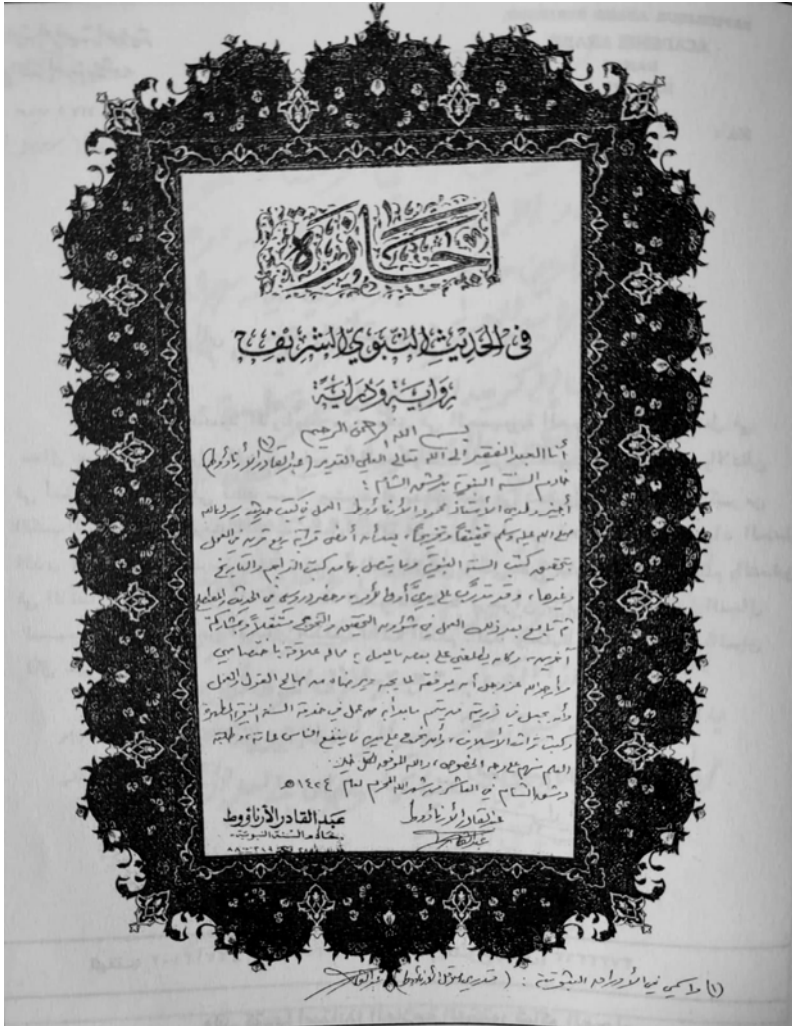 إجازة
في الحديث النبوي الشريف
رواية ودراية
بسم الله الرحمن الرحيم
أنا العبد الفقير إلى الله تعالى العلي القدير (عبد القادر الأرناؤوط) (١)
خادم السنة النبوية بدمشق الشام :
أجيز ولدي الأستاذ محمود الأرناؤوط العمل في كتب حديث رسول الله
صلى الله عليه وسلم تحقيقاً وتخريجاً، بعد أن أمضى قرابة ربع قرن من العمل
بتحقيق كتب السنة النبوية وما يتصل بها من كتب التراجم والتاريخ
وغيرها، وقد تدرّب على يديّ أول أمره، وحضر دروسي في الحديث والمصطلح
ثم تابع بعد ذلك العمل في شؤون التحقيق والتخريج مستقلاً وبمشاركة
آخرين، وكان يطلعني على بعض ما يعمل به مما له علاقة باختصاصي
وأرجو الله عز وجل أن يوفقه لما يحبه ويرضاه من صالح القول والعمل
وأن يجعل في ذريته من يتم ما بدأه من عمل في خدمة السنة النبوية المطهرة
وكتب تراث الأسلاف، وأن يخرج على يديه ما ينفع الناس عامة، وطلبة
العلم منهم على وجه الخصوص، والله الموفق لكل خير.
دمشق الشام في العاشر من شهر الله المحرم لعام ١٤٢٤هـ
عبد القادر الأرناؤوط
عبد القادر الأرناؤوط
خادم السنة النبوية
(١) واسمي في الأوراق الثبوتية : (قدري صوقل الأرناؤوط)